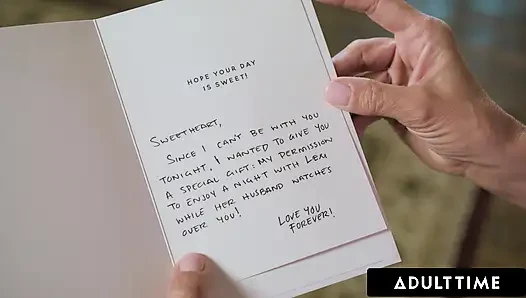 HOPE YOUR DAY
IS SWEET!
SWEETHEART,
SINCE I CAN'T BE WITH YOU
TONIGHT, I WANTED TO GIVE YOU
A SPECIAL GIFT: MY PERMISSION
TO ENJOY A NIGHT WITH LEXI
WHILE HER HUSBAND WATCHES
OVER YOU!
LOVE YOU
FOREVER!
ADULTTIME